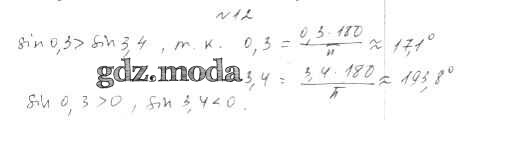 №12
sin 0,3 > sin 3,4, т.к. 0,3 = 0,3·180/π ≈ 17,1°
gdz.moda 3,4 = 3,4·180/π ≈ 193,8°
sin 0,3>0, sin 3,4<0.